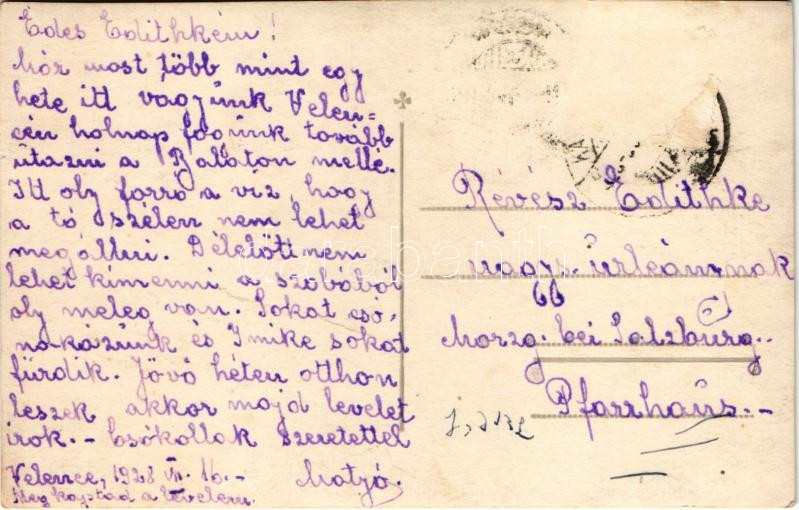 Édes Edithkém!
Már most több mint egy
hete itt vagyunk Velen=
cén holnap fogunk tovább
utazni a Balaton mellé.
Itt oly forró a víz, hogy
a tó szélen nem lehet
megállni. Délelőtt nem
lehet kimenni a szobából
oly meleg van. Sokat csó-
nakázunk és Imike sokat
fürdik. Jövő héten otthon
leszek akkor majd levelet
írok. - Csókollak szeretettel
Velence, 1928 VII. 16. -
Megkaptad a levelem.
Révész Edithke
nagys. úrleánynak
bei Salzburg.
Pfarrhaus. -
darabanth